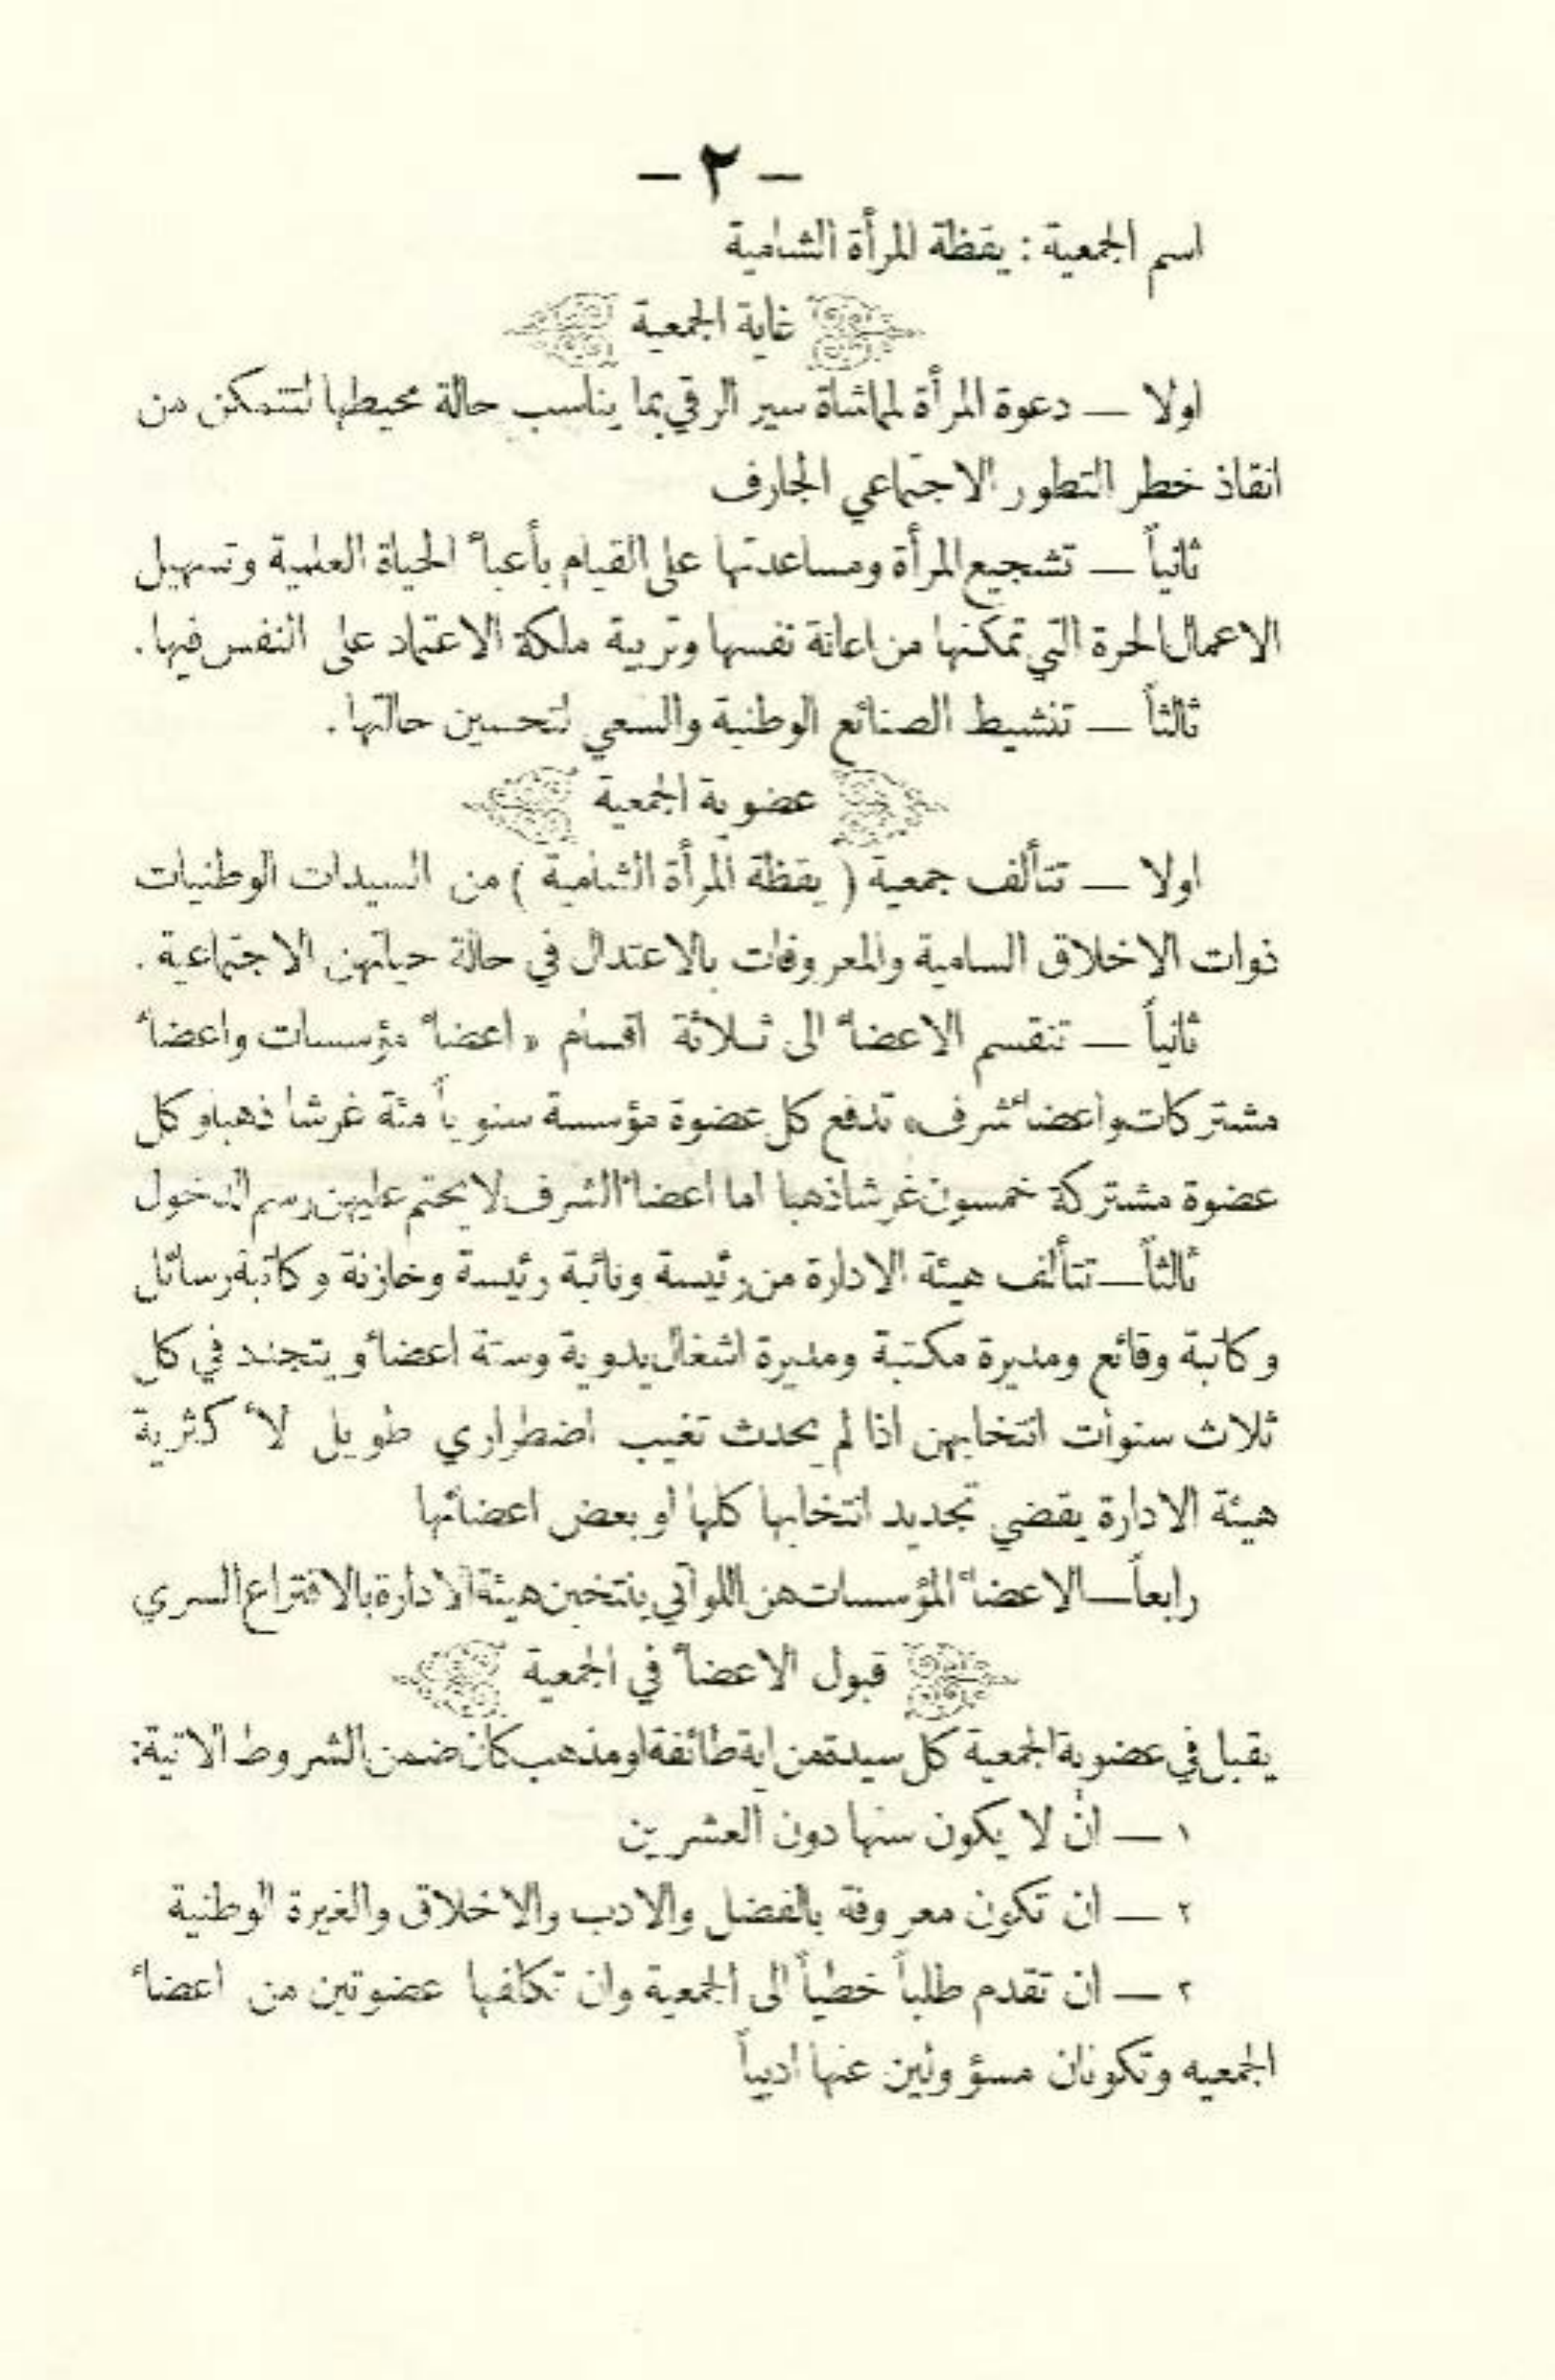 - ٢ -
اسم الجمعية : يقظة المرأة الشامية
غاية الجمعية
اولا — دعوة المرأة لمماشاة سير الرقي بما يناسب حالة محيطها لتتمكن من
انقاذ خطر التطور الاجتماعي الجارف
ثانياً — تشجيع المرأة ومساعدتها على القيام بأعباء الحياة العلمية وتسهيل
الاعمال الحرة التي تمكنها من اعانة نفسها وتربية ملكة الاعتماد على النفس فيها .
ثالثاً — تنشيط الصنائع الوطنية والسعي لتحسين حالتها .
عضوية الجمعية
اولا — تتألف جمعية ( يقظة المرأة الشامية ) من السيدات الوطنيات
ذوات الاخلاق السامية والمعروفات بالاعتدال في حالة حياتهن الاجتماعية .
ثانياً — تنقسم الاعضاء الى ثلاثة اقسام « اعضاء مؤسسات واعضاء
مشتركات واعضاء شرف » تدفع كل عضوة مؤسسة سنوياً مئة غرشا ذهبا وكل
عضوة مشتركة خمسون غرشا ذهبا اما اعضاء الشرف لا يحتم عليهن رسم الدخول
ثالثاً — تتألف هيئة الادارة من رئيسة ونائبة رئيسة وخازنة وكاتبة رسائل
وكاتبة وقائع ومديرة مكتبة ومديرة اشغال يدوية وستة اعضاء ويتجدد في كل
ثلاث سنوات انتخابهن اذا لم يحدث تغيب اضطراري طويل لأكثرية
هيئة الادارة يقضي تجديد انتخابها كلها او بعض اعضائها
رابعاً — الاعضاء المؤسسات هن اللواتي ينتخبن هيئة الادارة بالاقتراع السري
قبول الاعضاء في الجمعية
يقبل في عضوية الجمعية كل سيدة من اية طائفة او مذهب كان ضمن الشروط الاتية:
١ — ان لا يكون سنها دون العشرين
٢ — ان تكون معروفة بالفضل والادب والاخلاق والغيرة الوطنية
٣ — ان تقدم طلباً خطياً الى الجمعية وان تكلفها عضوتين من اعضاء
الجمعيه وتكونان مسؤولين عنها ادبياً